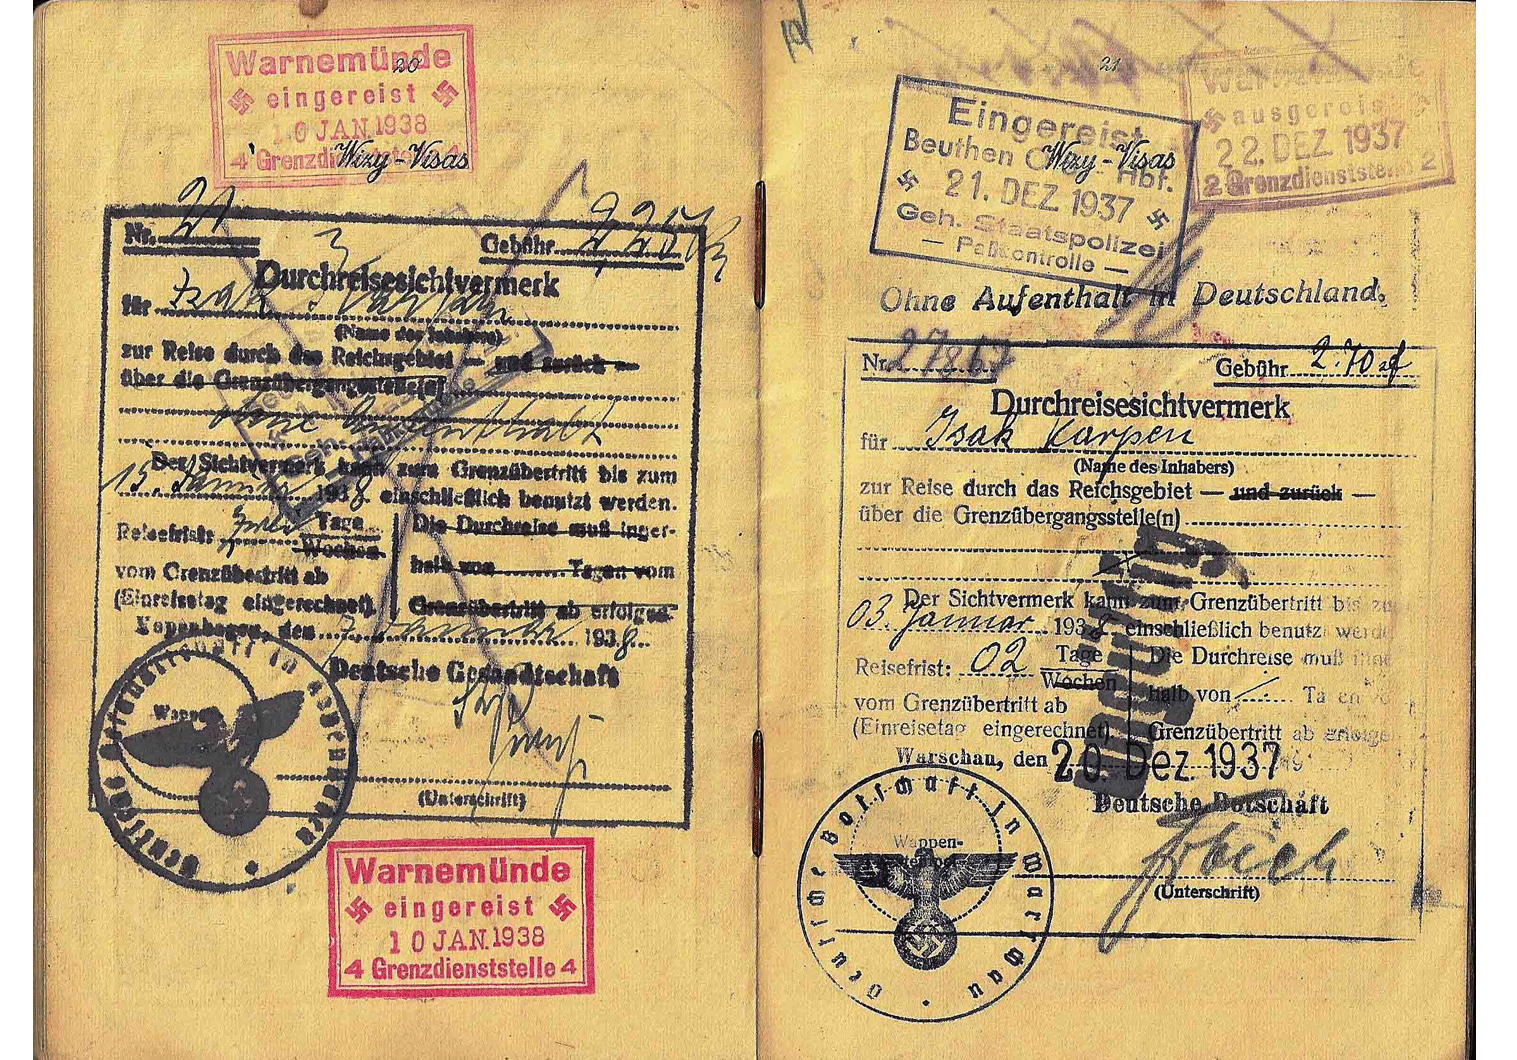 20
Warnemünde
eingereist
10 JAN. 1938
4 Grenzdienststelle 4
Wizy-Visas
Nr. 21
Gebühr 2,25
Durchreisesichtvermerk
für Isak Karpen
(Name des Inhabers)
zur Reise durch das Reichsgebiet — und zurück —
über die Grenzübergangsstelle(n)
ohne Aufenthalt
Der Sichtvermerk kann zum Grenzübertritt bis zum
15. Januar 1938 einschließlich benutzt werden.
Reisefrist: Zwei Tage
Wochen
vom Grenzübertritt ab
(Einreisetag eingerechnet).
Die Durchreise muß inner-
halb von Tagen vom
Grenzübertritt ab erfolgen
Kopenhagen, den 7. Januar 1938.
Deutsche Gesandtschaft
(Unterschrift)
Wappen
Warnemünde
eingereist
10 JAN. 1938
4 Grenzdienststelle 4
21
Eingereist
Beuthen Hbf.
21. DEZ 1937
Geh. Staatspolizei
— Paßkontrolle —
Wizy-Visas
Warnemünde
ausgereist
22. DEZ 1937
2 Grenzdienststelle 2
Ohne Aufenthalt in Deutschland.
Nr. 27867
Gebühr 2.70
Durchreisesichtvermerk
für Isak Karpen
(Name des Inhabers)
zur Reise durch das Reichsgebiet — und zurück —
über die Grenzübergangsstelle(n)
Der Sichtvermerk kann zum Grenzübertritt bis zu
03. Januar 1938 einschließlich benutzt werde
Reisefrist: 02 Tage
Wochen
vom Grenzübertritt ab
(Einreisetag eingerechnet)
Die Durchreise muß inne
halb von Ta en vo
Grenzübertritt ab erfolge
Ungültig
Warschau, den 20. Dez. 1937
Deutsche Botschaft
(Unterschrift)
Deutsche Botschaft in Warschau
Wappen-